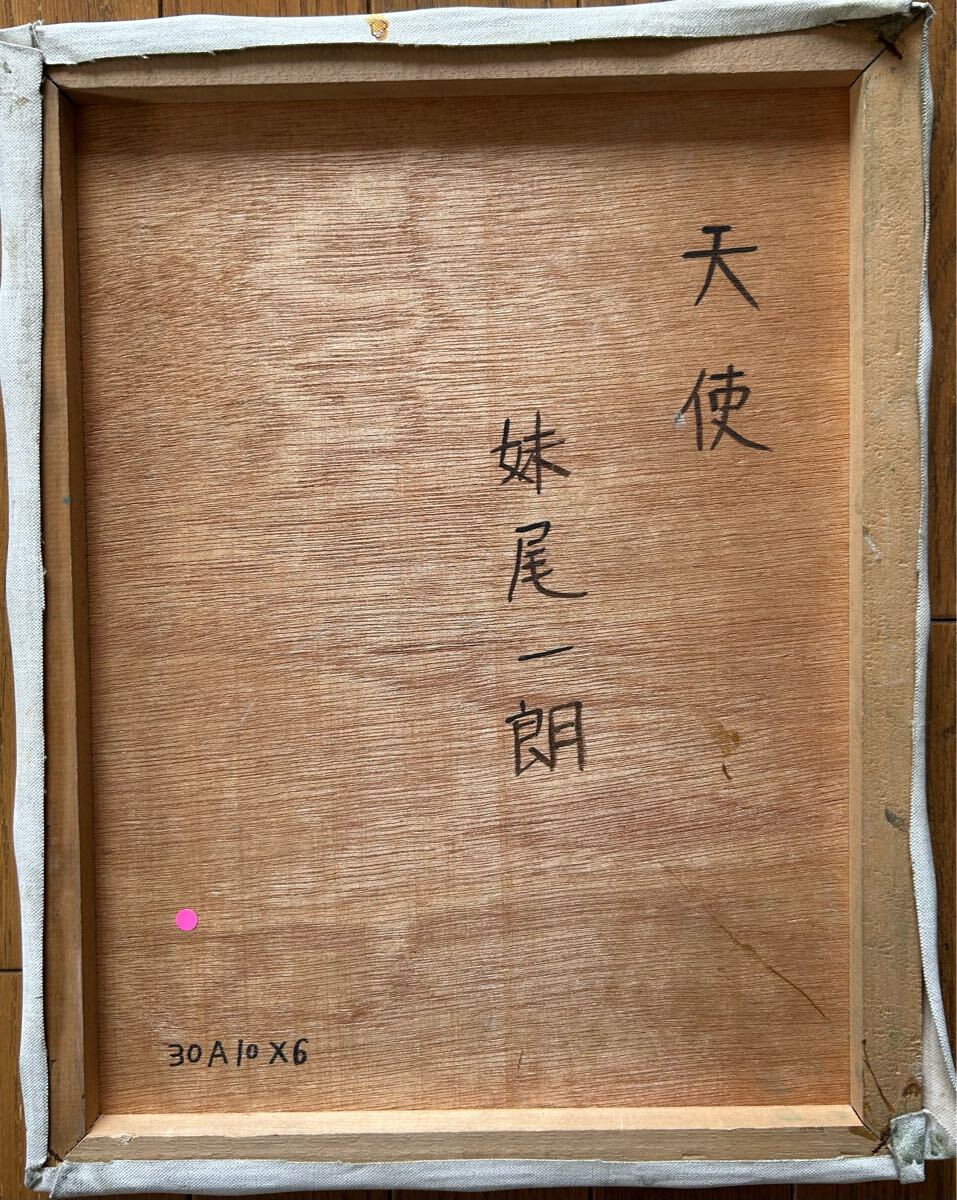 天使
妹尾一朗
30A10X6